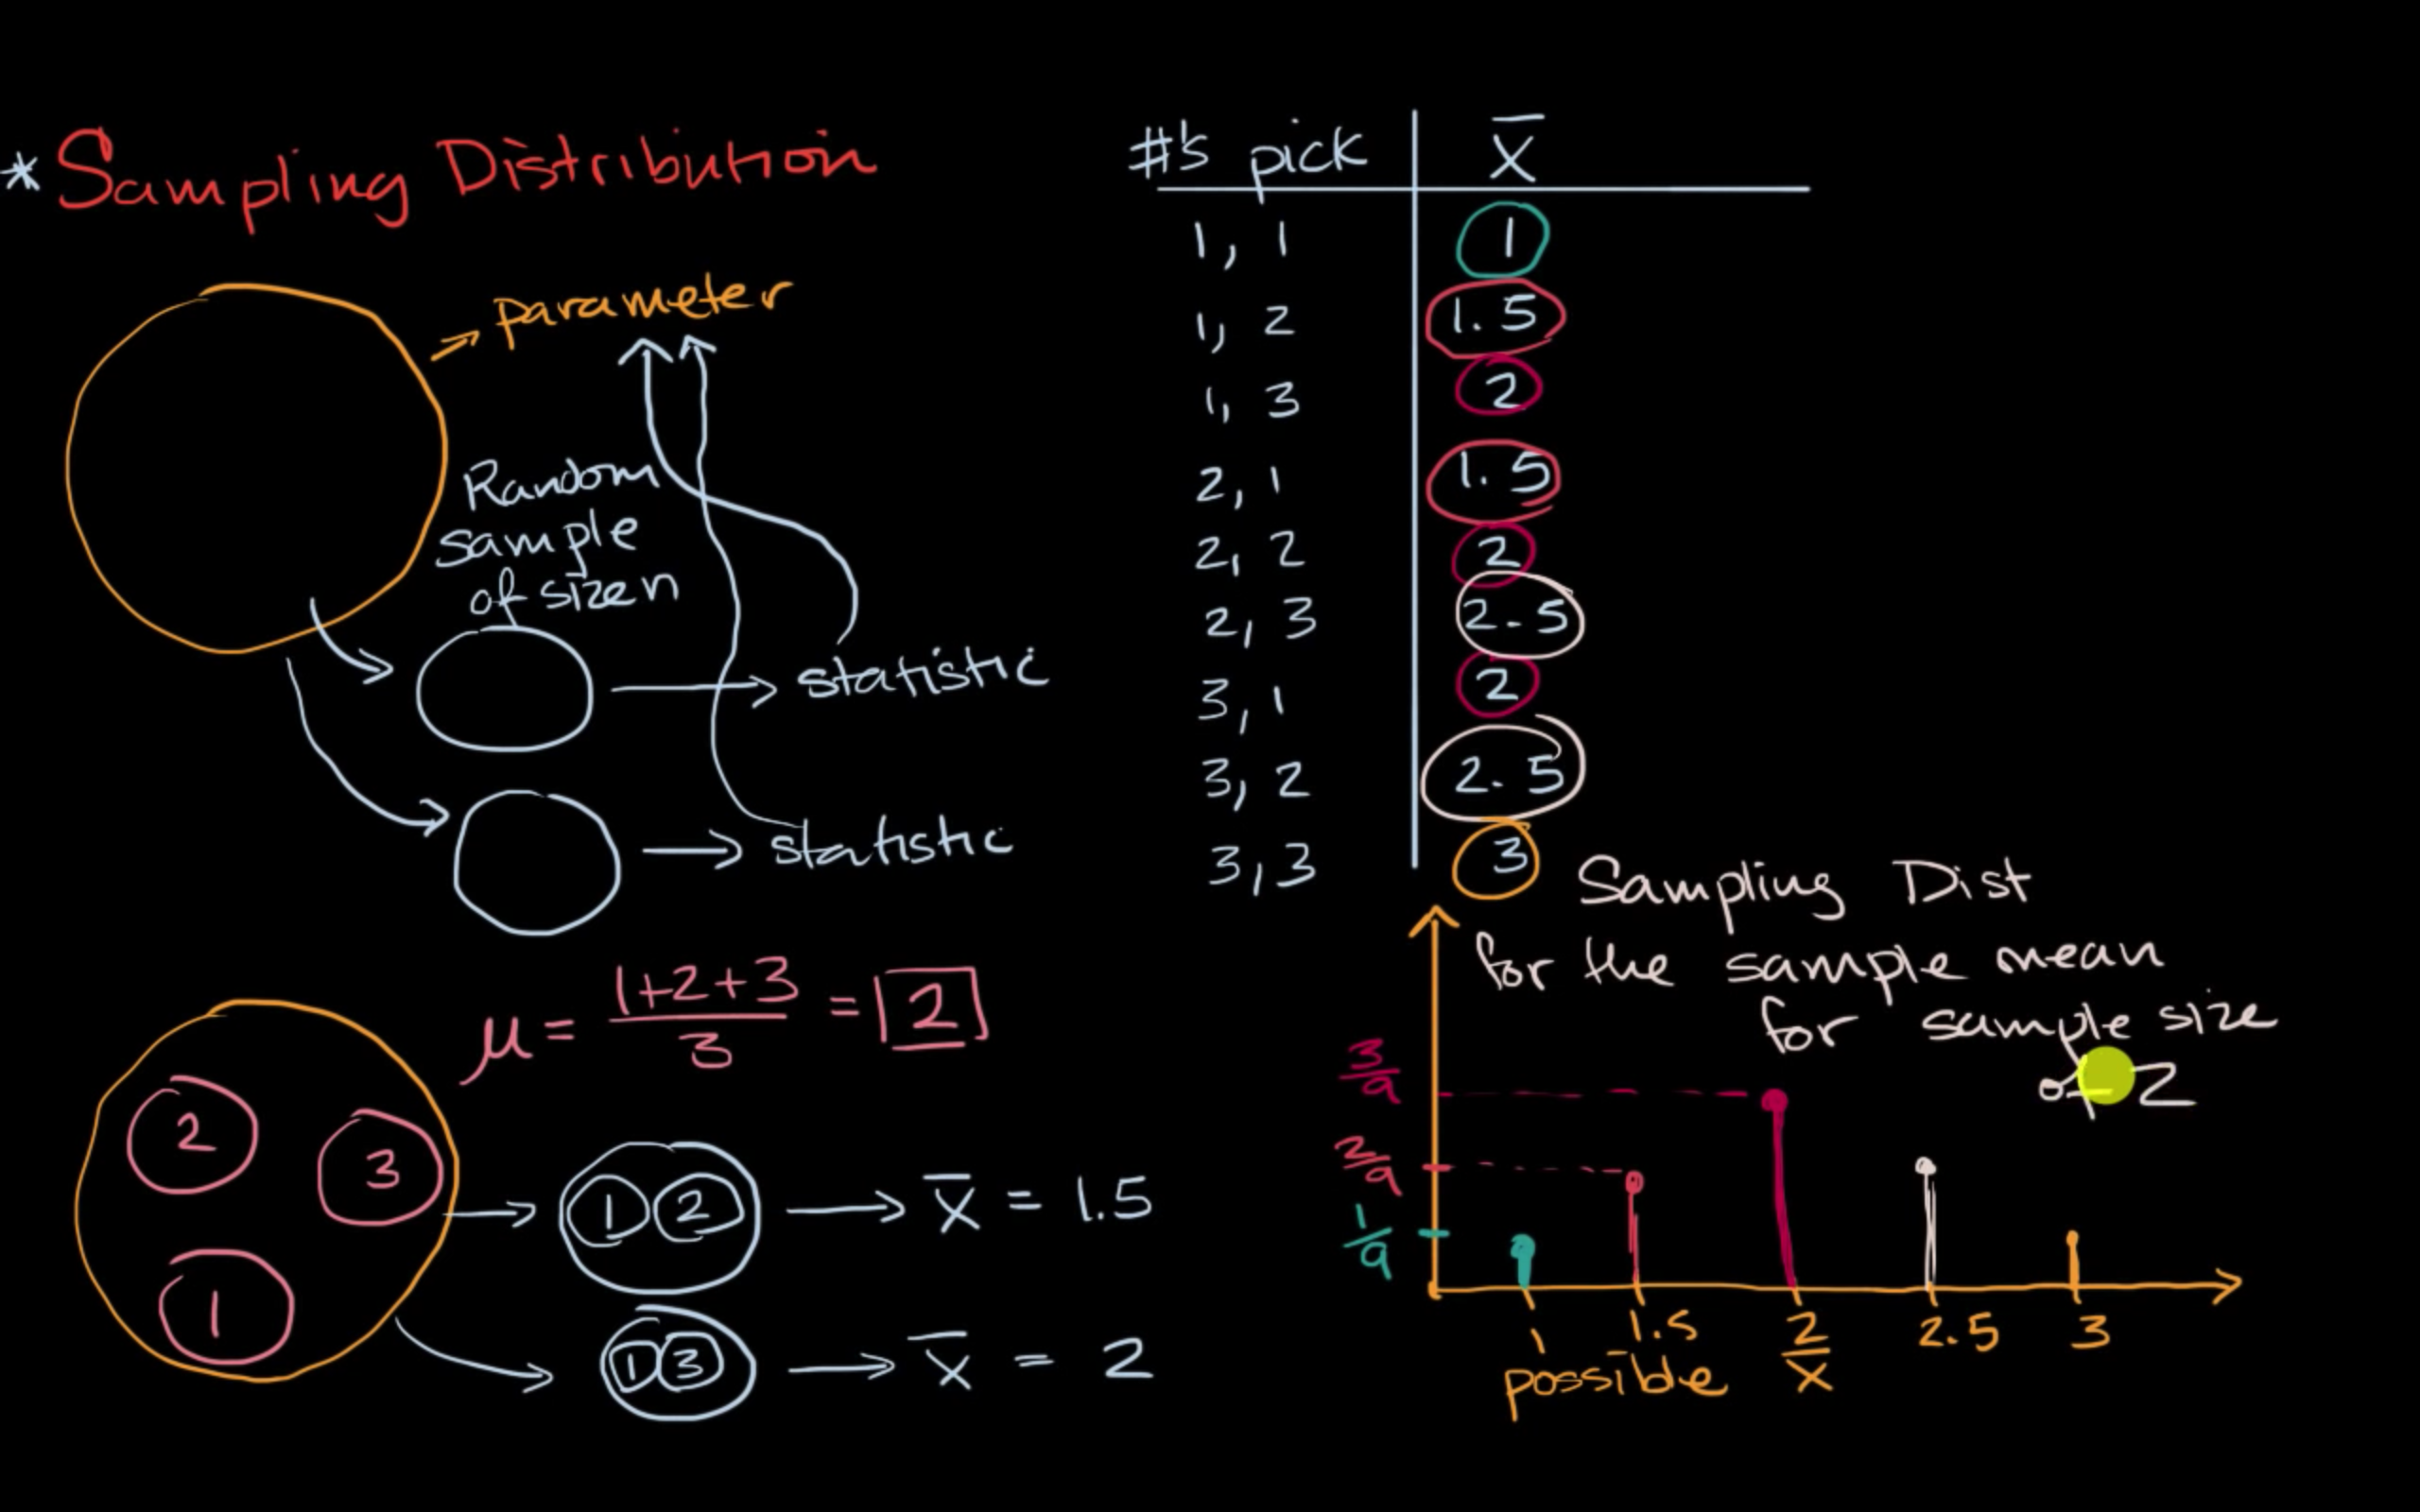 * Sampling Distribution
parameter
Random
sample
of size n
statistic
statistic
μ = 1+2+3 / 3 = 2
2
3
1
1 2 x̄ = 1.5
1 3 x̄ = 2
#'s pick x̄
1, 1 1
1, 2 1.5
1, 3 2
2, 1 1.5
2, 2 2
2, 3 2.5
3, 1 2
3, 2 2.5
3, 3 3
Sampling Dist
for the sample mean
for sample size
of 2
3/9
2/9
1/9
1 1.5 2 2.5 3
possible x̄